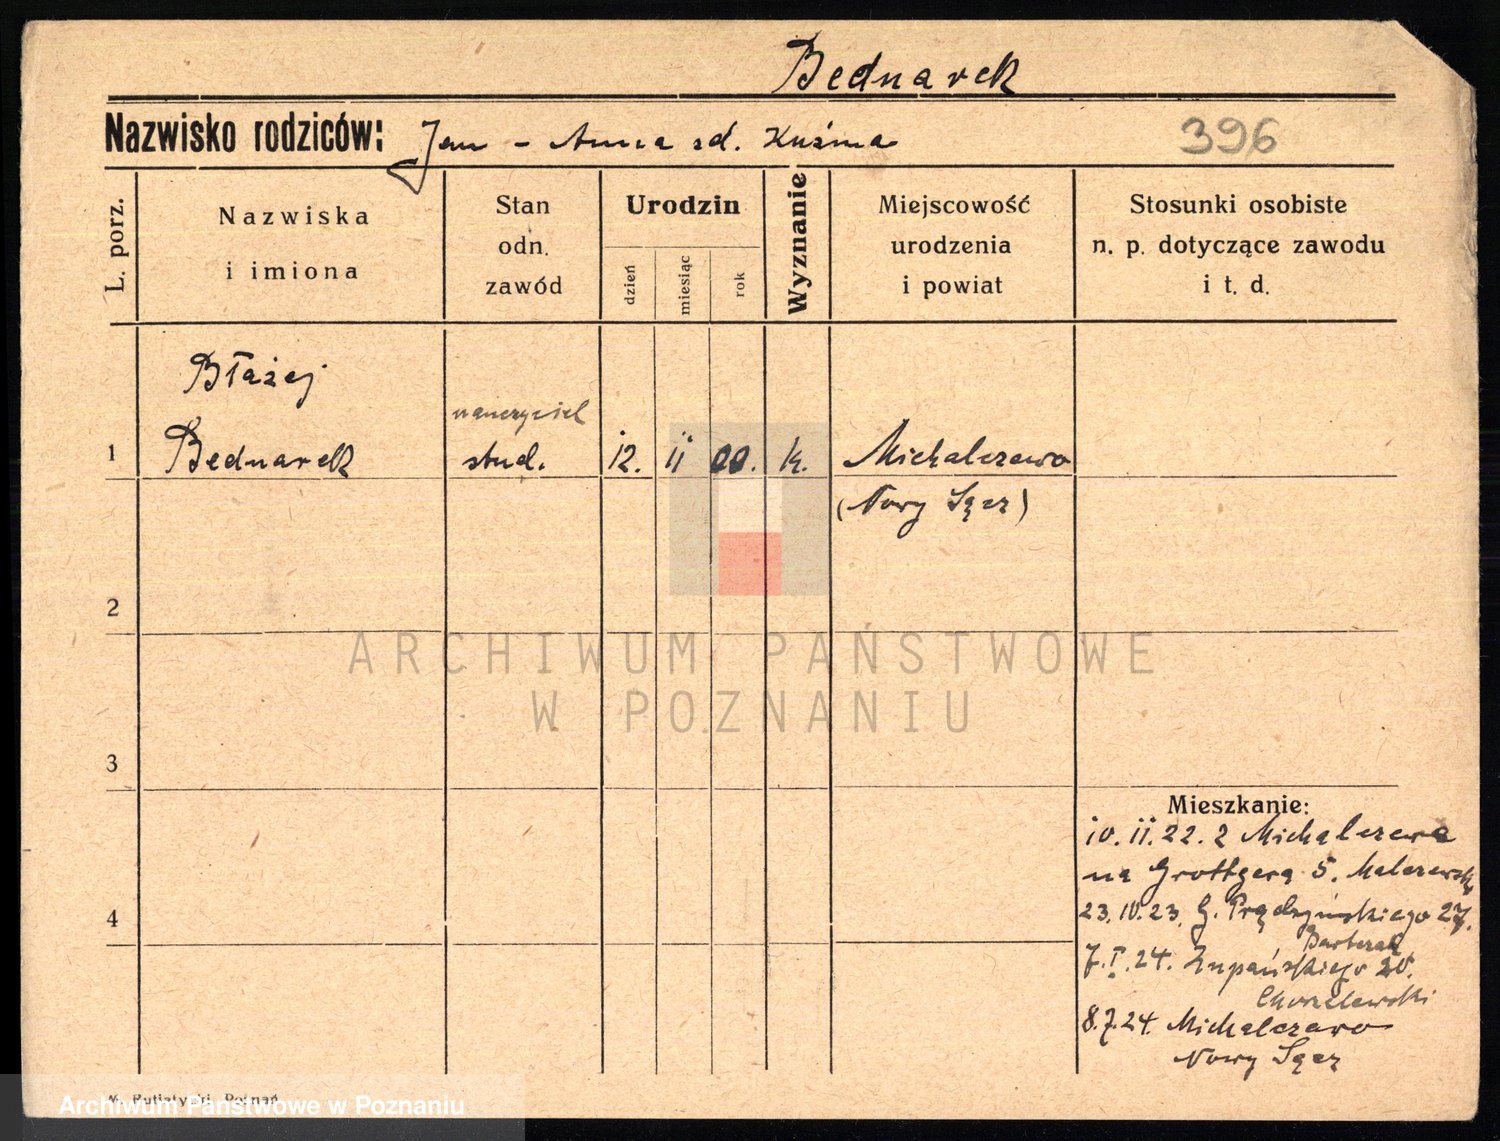 Bednarek
Nazwisko rodziców: Jan - Anna zd. Kuźma
396
L. porz.
Nazwiska
i imiona
Stan
odn.
zawód
Urodzin
dzień
miesiąc
rok
Wyznanie
Miejscowość
urodzenia
i powiat
Stosunki osobiste
n. p. dotyczące zawodu
i t. d.
Błażej
nauczyciel
1 Bednarek stud. 12. 11 00. k. Michalczewo
(Nowy Sącz)
2
ARCHIWUM PAŃSTWOWE
W POZNANIU
3
Mieszkanie:
10. 11. 22. z Michalczewa
na Grottgera 5.
4
23. 10. 23. G. Prądzyńskiego 27.
7. I. 24. Żupańskiego 20.
8. 7. 24. Michalczewo
Nowy Sącz
Putiatycki, Poznań
Archiwum Państwowe w Poznaniu